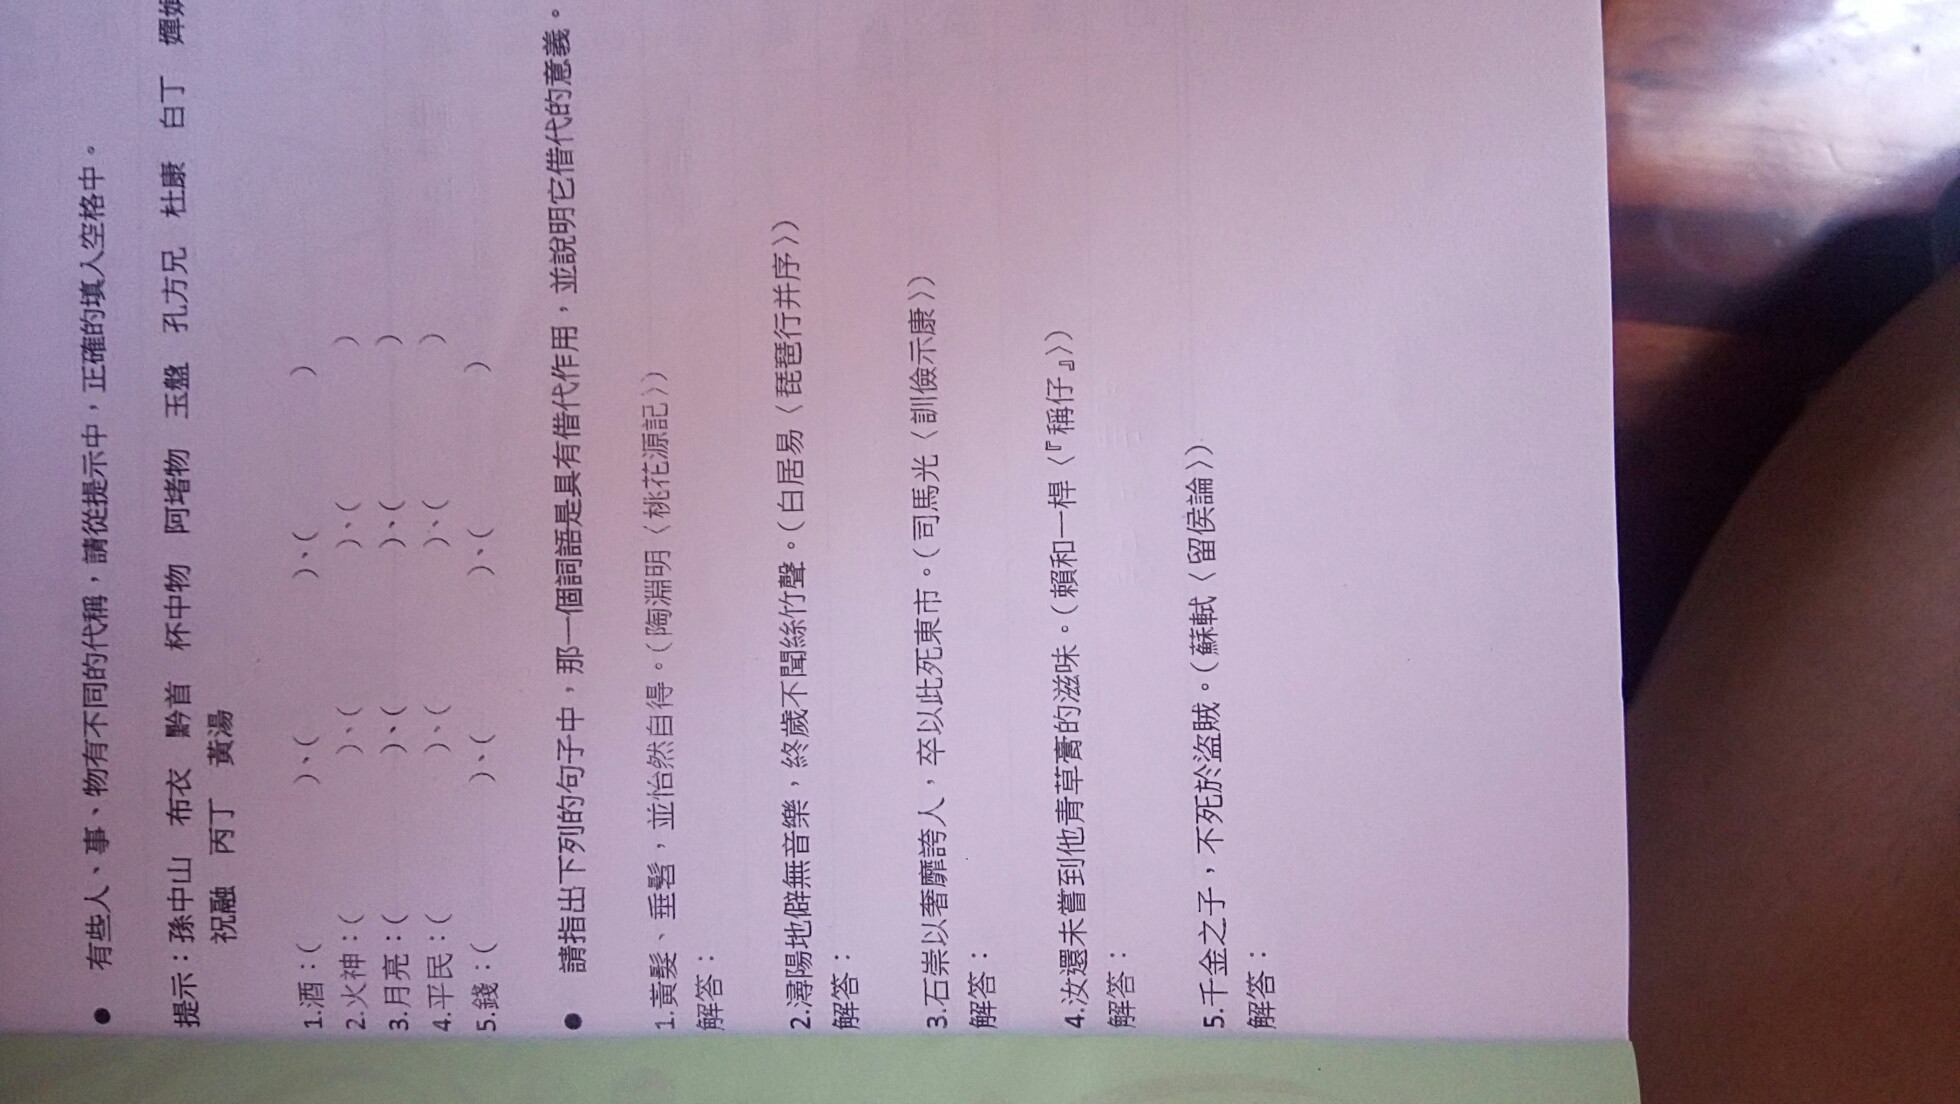 ● 有些人、事、物有不同的代稱，請從提示中，正確的填入空格中。
提示：孫中山 布衣 黔首 杯中物 阿堵物 玉盤 孔方兄 杜康 白丁 嬋娟
祝融 丙丁 黃湯
1.酒：( )、( )、( )
2.火神：( )、( )、( )
3.月亮：( )、( )、( )
4.平民：( )、( )、( )
5.錢：( )、( )、( )
● 請指出下列的句子中，那一個詞語是具有借代作用，並說明它借代的意義。
1.黃髮、垂髫，並怡然自得。(陶淵明〈桃花源記〉)
解答：
2.潯陽地僻無音樂，終歲不聞絲竹聲。(白居易〈琵琶行并序〉)
解答：
3.石崇以奢靡誇人，卒以此死東市。(司馬光〈訓儉示康〉)
解答：
4.汝還未嘗到他青草膏的滋味。(賴和一桿〈『稱仔』〉)
解答：
5.千金之子，不死於盜賊。(蘇軾〈留侯論〉)
解答：